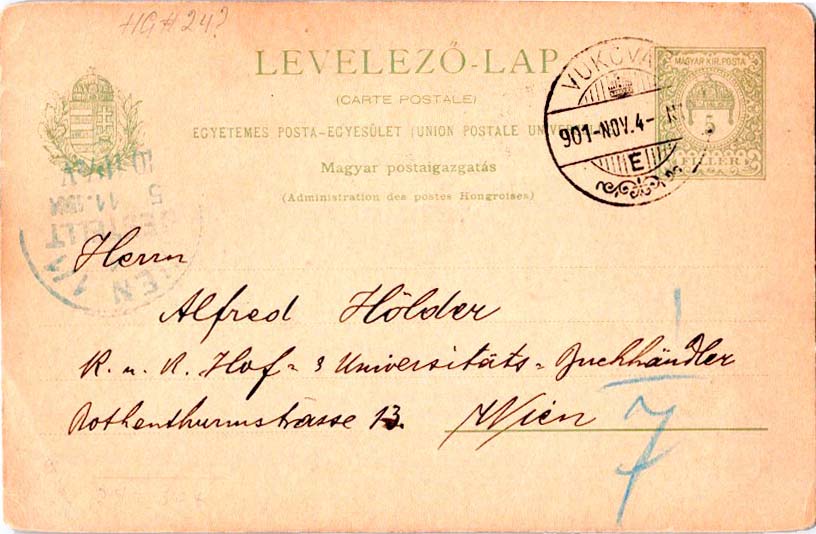 HG#24?
LEVELEZŐ-LAP
(CARTE POSTALE)
EGYETEMES POSTA-EGYESÜLET (UNION POSTALE UNIVER
Magyar postaigazgatás
(Administration des postes Hongroises)
MAGYAR KIR. POSTA
5
FILLÉR
VUKOVA
901-NOV.4-
E
BESTELLT
WIEN 1/1
5
Herrn
Alfred Hölder
K. u. K. Hof- & Universitäts-Buchhändler
Rothenthurmstrasse 13. Wien
1
7